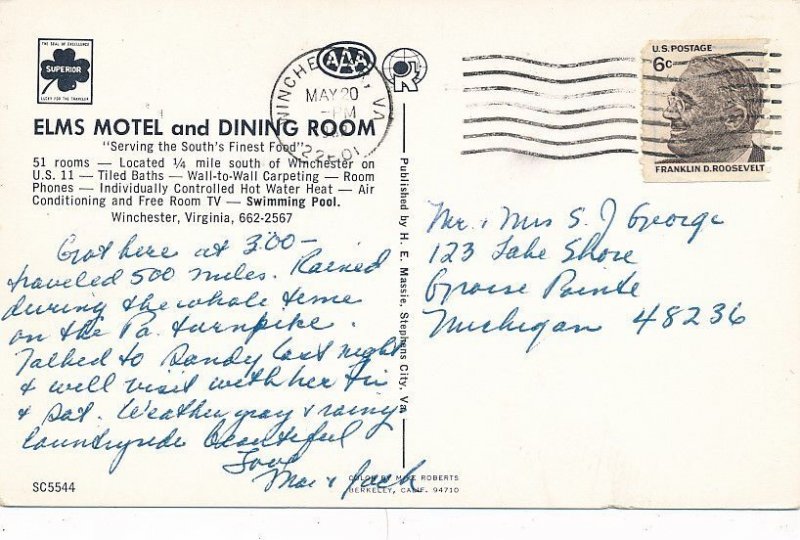 THE SEAL OF EXCELLENCE
SUPERIOR
LUCKY FOR THE TRAVELER
AAA
ELMS MOTEL and DINING ROOM
"Serving the South's Finest Food"
51 rooms — Located ¼ mile south of Winchester on
U.S. 11 — Tiled Baths — Wall-to-Wall Carpeting — Room
Phones — Individually Controlled Hot Water Heat — Air
Conditioning and Free Room TV — Swimming Pool.
Winchester, Virginia, 662-2567
Got here at 3:00 —
traveled 500 miles. Rained
during the whole time
on the Pa. turnpike.
Talked to Sandy last night
& will visit with her Fri
& Sat. Weather gray & rainy
Countryside beautiful
Love
Mae & Jack
SC5544
Published by H. E. Massie, Stephens City, Va.
COLOR BY MIKE ROBERTS
BERKELEY, CALIF. 94710
WINCHESTER, VA
MAY 20
PM
22601
U.S. POSTAGE
6c
FRANKLIN D. ROOSEVELT
Mr. & Mrs S. J George
123 Lake Shore
Grosse Pointe
Michigan 48236